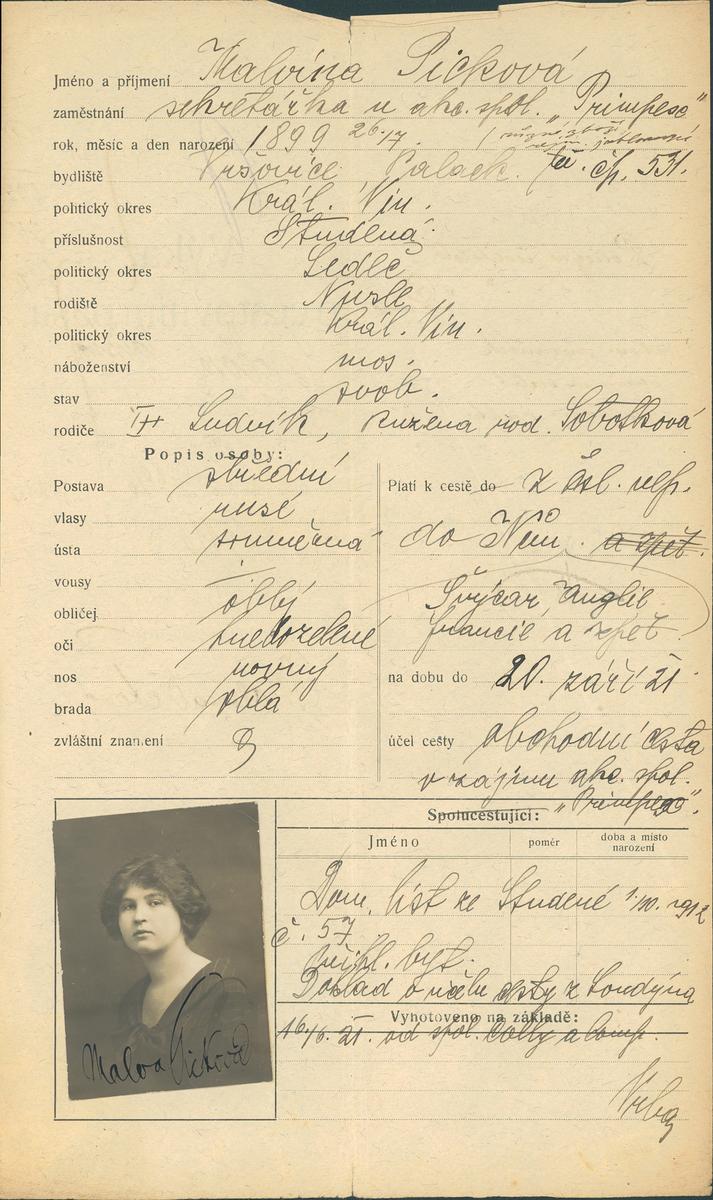 Jméno a příjmení Malvína Picková
zaměstnání sekretářka u akc. spol. „Primpeso"
rok, měsíc a den narození 1899 26./7.
bydliště Vršovice Palack. tř. čp. 531.
politický okres Král. Vin.
příslušnost Studená
politický okres Ledeč
rodiště Nusle
politický okres Král. Vin.
náboženství mos.
stav svob.
rodiče Ludvík, Růžena rod. Sobotková
Popis osoby:
Postava střední
vlasy rusé
ústa souměrná
vousy —
obličej oblý
oči hnědozelené
nos rovný
brada oblá
zvláštní znamení
Platí k cestě do z čsl. rep.
do Něm. a zpět.
Švýcar, Anglie
Francie a zpět
na dobu do 20. září 21
účel cesty obchodní cesta
v zájmu akc. spol.
„Primpeso".
Spolucestující:
Jméno poměr doba a místo narození
Dom. list ze Studené 1912
č. 57
byt.
Doklad o účelu cesty z Londýna
Vyhotoveno na základě:
16./6. 21. od spol. a Comp.
Malva Picková
Vrba